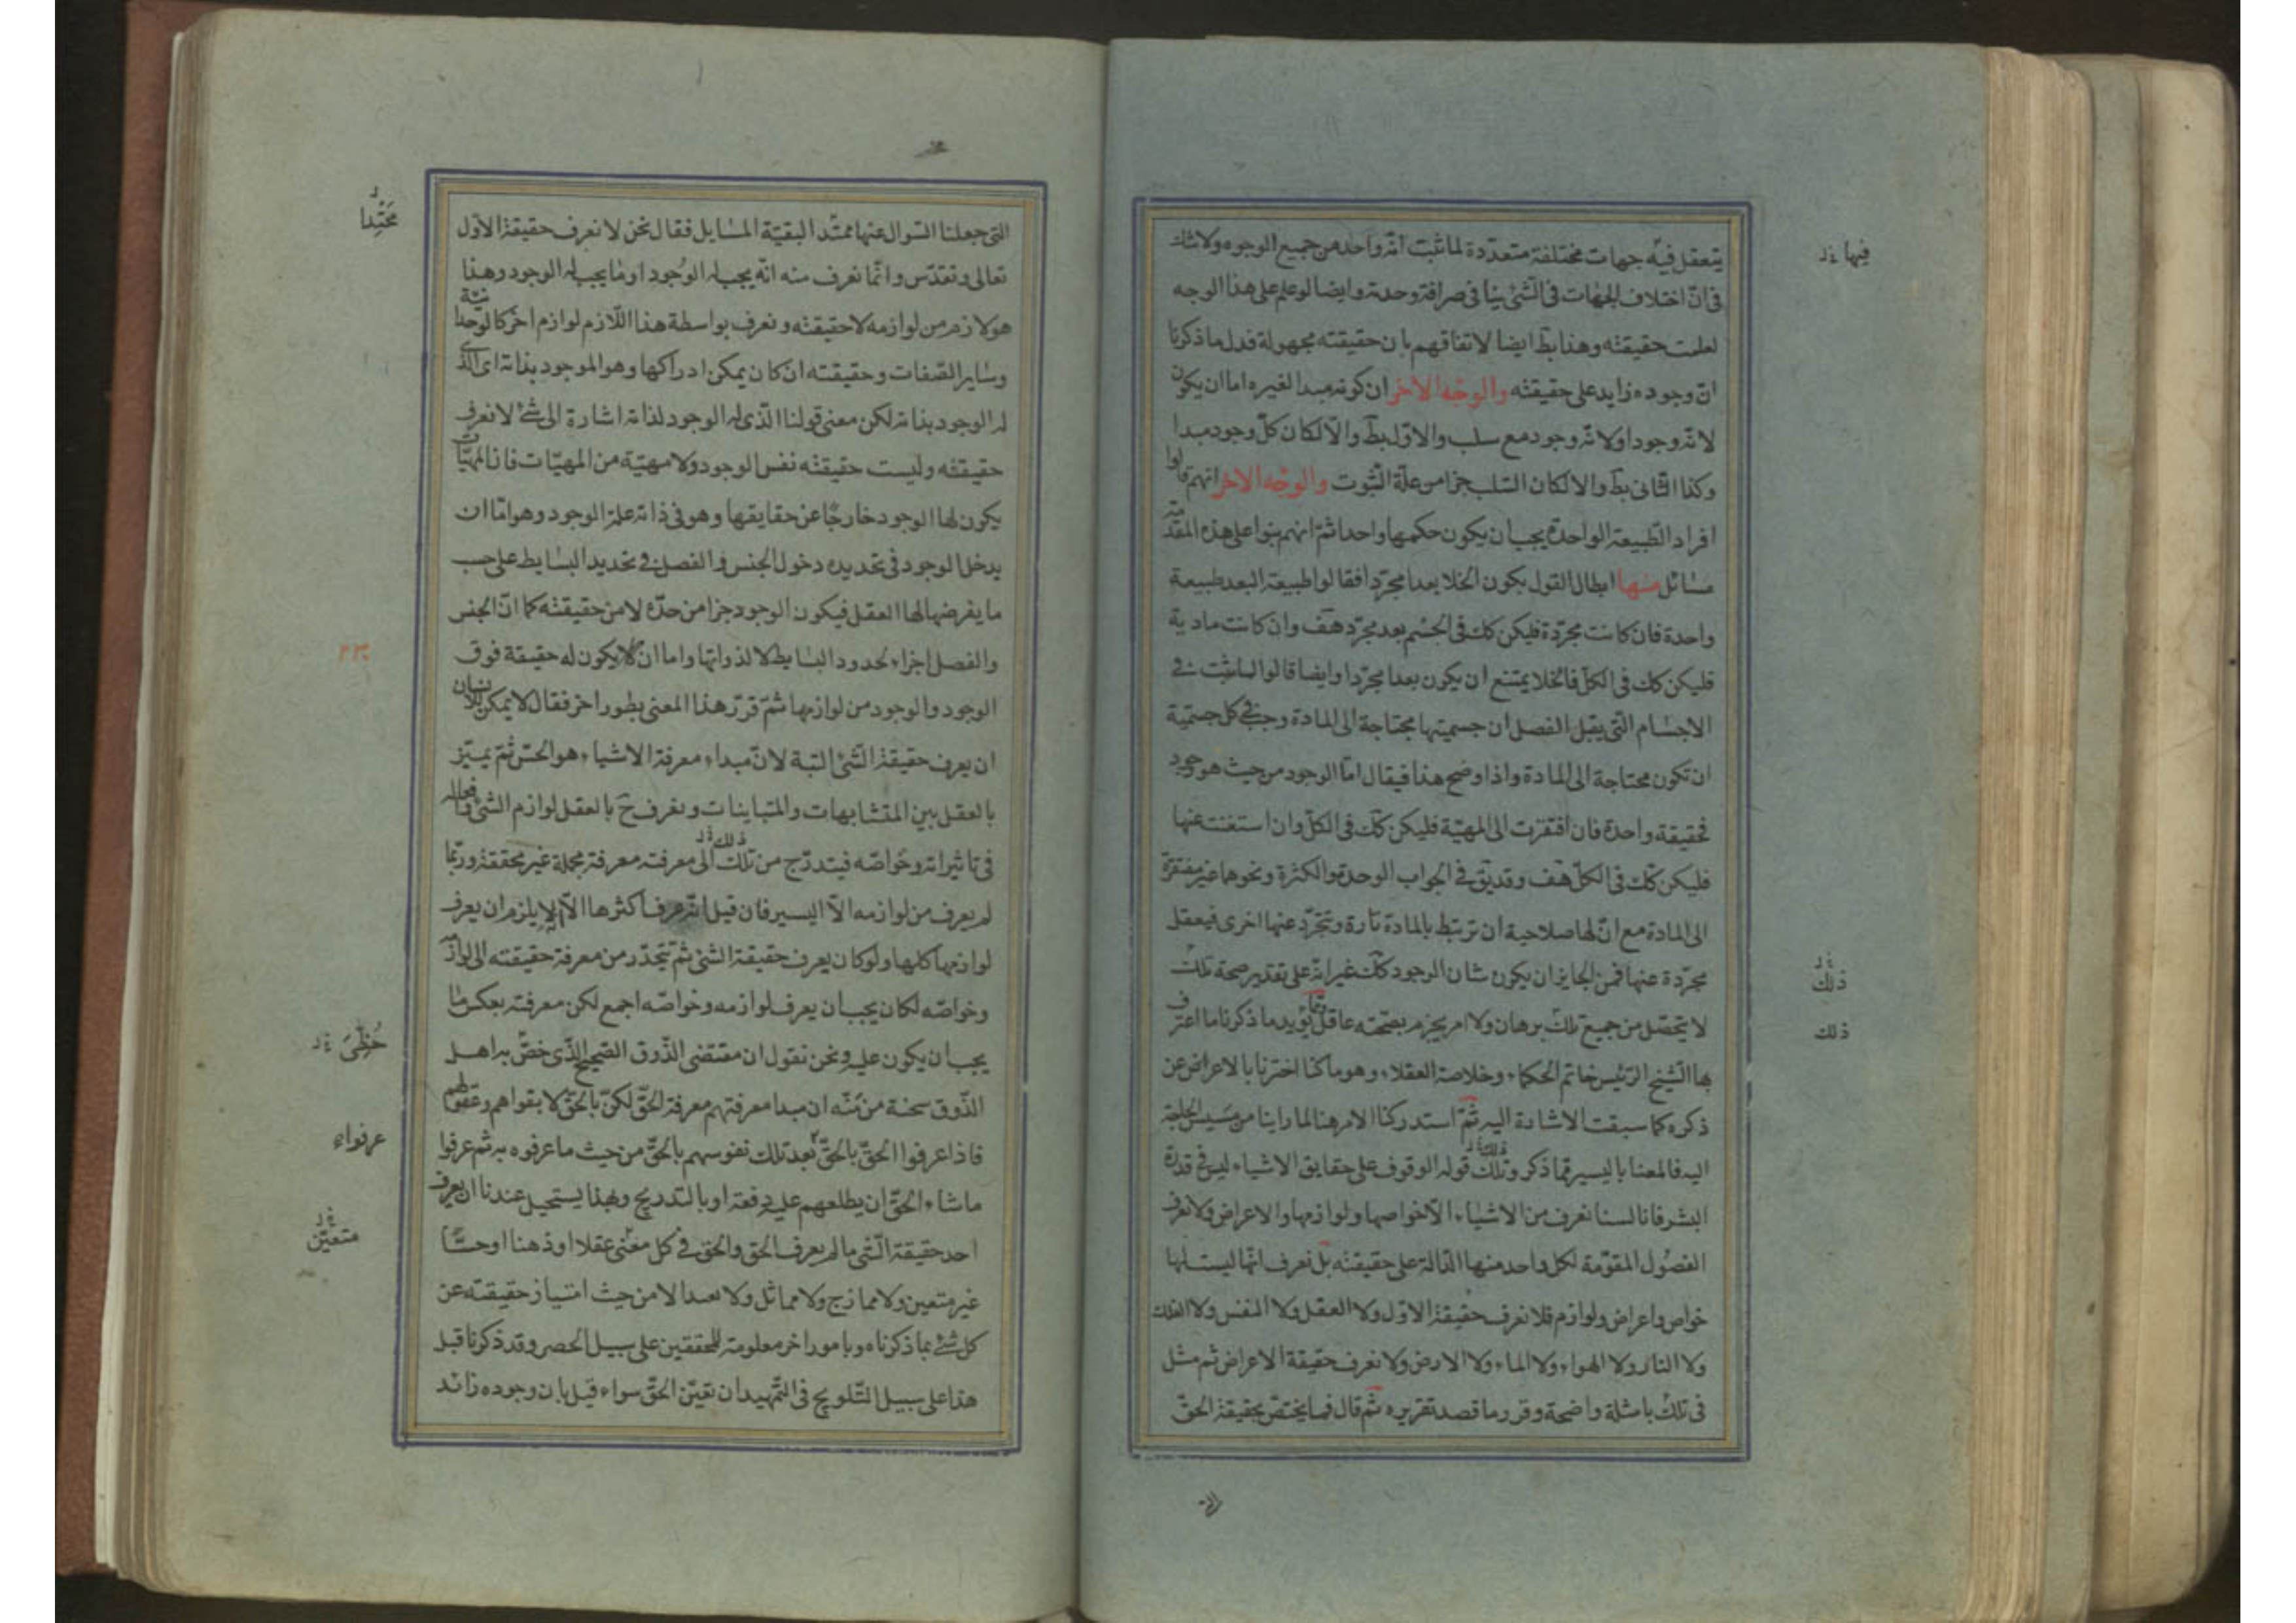 يتعقل فيه جهات مختلفة متعددة لما ثبت انه واحد من جميع الوجوه ولا شك
فى ان اختلاف الجهات فى الشئ ينافى صرافة وحدته وايضا لو علم على هذا الوجه
لعلمت حقيقته وهذا بط ايضا لاتفاقهم بان حقيقته مجهولة فدل ما ذكرنا
ان وجوده زايد على حقيقته والوجه الاخر ان كونه مبدا لغيره اما ان يكون
لانه وجود او لانه وجود مع سلب والاول بط والا لكان كل وجود مبدا
وكذا الثانى بط والا لكان السلب جزا من علة الثبوت والوجه الاخر انهم قالوا
افراد الطبيعة الواحدة يجب ان يكون حكمها واحدا ثم انهم بنوا على هذه المقدمة
مسائل منها ابطال القول بكون الخلا بعدا مجردا فقالوا طبيعة البعد طبيعة
واحدة فان كانت مجردة فليكن كك فى الجسم بعد مجرد هف وان كانت مادية
فليكن كك فى الكل فالخلا يمتنع ان يكون بعدا مجردا وايضا قالوا لما ثبت فى
الاجسام التى يقبل الفصل ان جسميتها محتاجة الى المادة وجب فى كل جسمية
ان تكون محتاجة الى المادة واذا وضح هذا فيقال اما الوجود من حيث هو وجود
فحقيقة واحدة فان افتقرت الى المهية فليكن كك فى الكل وان استغنت عنها
فليكن كك فى الكل هف وقد يق فى الجواب الوحدة والكثرة ونحوهما غير مفتقرة
الى المادة مع ان لها صلاحية ان ترتبط بالمادة تارة وتتجرد عنها اخرى فيعقل
مجردة عنها فمن الجايز ان يكون شان الوجود كك غير انه على تقدير صحة تلك
لا يتحصل من جميع تلك برهان ولا امر يجزم بصحته عاقل ومما يؤيد ما ذكرنا ما اعترف
بها الشيخ الرئيس خاتم الحكماء وخلاصة العقلاء وهو ما كنا اخترنا بالاعراض عن
ذكره كما سبقت الاشارة اليه ثم استدركنا الامر هنا لما راينا من مسيس الحاجة
اليه فالمعنا باليسير مما ذكر وتلك قوله الوقوف على حقايق الاشياء ليس فى قدرة
البشر فانا لسنا نعرف من الاشياء الا خواصها ولوازمها والاعراض ولا نعرف
الفصول المقومة لكل واحد منها الدالة على حقيقته بل نعرف انما ليست لها
خواص واعراض ولوازم فلا نعرف حقيقة الاول ولا العقل ولا النفس ولا الفلك
ولا النار ولا الهواء ولا الماء ولا الارض ولا نعرف حقيقة الاعراض ثم مثل
فى تلك بامثلة واضحة وقرر ما قصد تقريره ثم قال فيما يختص بحقيقة الحق
التى
فيها خ ل
ذلك خ ل
ذلك
التى جعلنا السوال عنها ممتدا لبقية المسايل فقال نحن لا نعرف حقيقة الاول
تعالى وتقدس وانما نعرف منه انه يجب له الوجود او ما يجب له الوجود وهذا
هو لازم من لوازمه لا حقيقته ونعرف بواسطة هذا اللازم لوازم اخر كالوحدانية
وساير الصفات وحقيقته ان كان يمكن ادراكها وهو الموجود بذاته اى الذى
له الوجود بذاته لكن معنى قولنا الذى له الوجود لذاته اشارة الى شئ لا نعرف
حقيقته وليست حقيقته نفس الوجود ولا مهية من المهيات فان المهيات
يكون لها الوجود خارجا عن حقايقها وهو فى ذاته علة الوجود وهو اما ان
يدخل الوجود فى تحديده دخول الجنس والفصل فى تحديد البسايط على حسب
ما يفرضها لها العقل فيكون الوجود جزا من حده لا من حقيقته كما ان الجنس
والفصل اجزاء لحدود البسايط لا لذواتها واما ان لا يكون له حقيقة فوق
الوجود والوجود من لوازمها ثم قرر هذا المعنى بطور اخر فقال لا يمكن للانسان
ان يعرف حقيقة الشئ البتة لان مبداء معرفة الاشياء هو الحس ثم يميز
بالعقل بين المتشابهات والمتباينات ونعرف ح بالعقل لوازم الشئ وافعاله
فى تاثيراته وخواصه فيتدرج من تلك الى معرفته معرفة مجملة غير محققة وربما
لم يعرف من لوازمه الا اليسير فان قيل انه عرف اكثرها الا انه لا يلزم ان يعرف
لوازمها كلها ولو كان يعرف حقيقة الشئ ثم يتحدر من معرفة حقيقته الى لوازمه
وخواصه لكان يجب ان يعرف لوازمه وخواصه اجمع لكن معرفته بعكس ما
يجب ان يكون عليه ونحن نقول ان مقتضى الذوق الصحيح الذى خص به اهل
الذوق منة ان مبدا معرفتهم معرفة الحق لكن بالحق لا بقواهم وعقولهم
فاذا عرفوا الحق بالحق بعد تلك نفوسهم بالحق من حيث ما عرفوه به ثم عرفوا
ما شاء الحق ان يطلعهم عليه دفعة او بالتدريج وبهذا يستحيل عندنا ان يعرف
احد حقيقة الشئ ما لم يعرف الحق والحق فى كل معنى عقلا او ذهنا او حسا
غير متعين ولا ممازج ولا مماثل ولا الا من حيث امتياز حقيقته عن
كل شئ بما ذكرناه وبامور اخر معلومة للمحققين على سبيل الحصر وقد ذكرنا قبل
هذا على سبيل التلويح فى التمهيد ان تعين الحق سواء قيل بان وجوده زائد
محتدا
ذلك خ ل
حظى خ ل
عرفواء
متعين خ ل